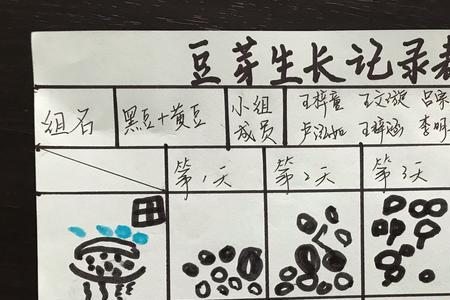 豆芽生长记录表
组名 黑豆+黄豆 小组成员 王梓童 王文漩 吕
卢泓如 王梓涵 李明
第1天 第2天 第3天